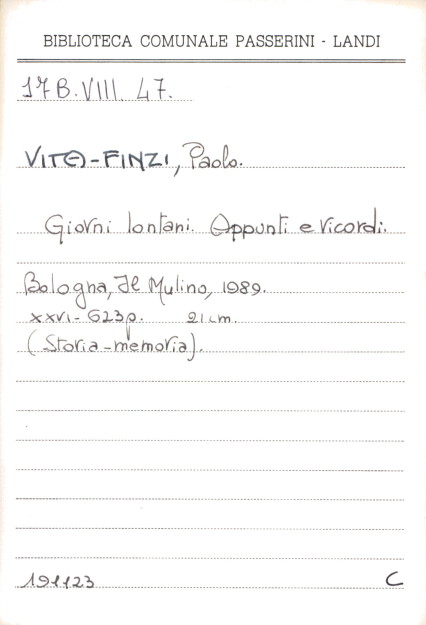 BIBLIOTECA COMUNALE PASSERINI - LANDI
17B.VIII. 47.
VITO-FINZI, Paolo.
Giorni lontani. Appunti e ricordi.
Bologna, Il Mulino, 1989.
XXVI-623p. 21cm.
(Storia-memoria).
191123 C